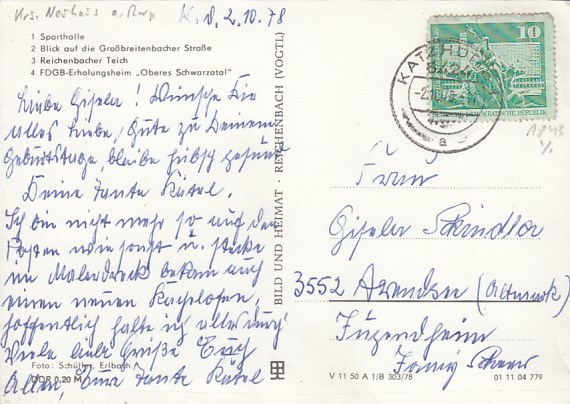 Krs. Neuhaus a. Rwg
K. d. 2.10.78
1 Sporthalle
2 Blick auf die Großbreitenbacher Straße
3 Reichenbacher Teich
4 FDGB-Erholungsheim „Oberes Schwarzatal"
Liebe Gisela! Wünsche Dir
alles Liebe, Gute zu Deinem
Geburtstage, bleibe hübsch gesund
Deine Tante Kätel.
Ich bin nicht mehr so auf dem
Posten wie sonst u. stecke
im Malerdreck bekam auch
einen neuen Kachelofen,
hoffentlich halte ich alles durch
Viele liebe Grüße Euch
Allen, Eure Tante Kätel
Foto: Schüller, Erlbach
DDR 0,20 M
BILD UND HEIMAT · REICHENBACH (VOGTL)
10
DEUTSCHE DEMOKRATISCHE REPUBLIK
KATZHÜTTE
a
1843
Frau
Gisela Schindler
3552 Arendsee (Altmark)
Jugendheim
V 11 50 A 1/B 303/78
01 11 04 779